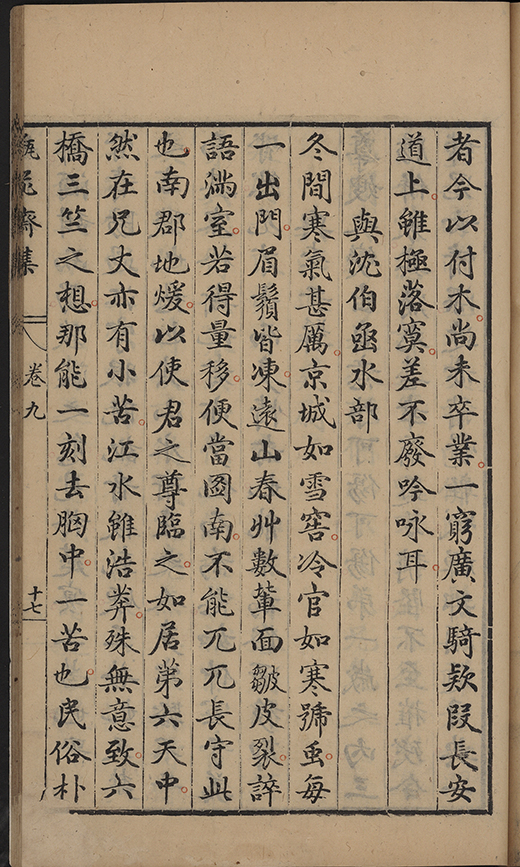 者今以付木尚未卒業一窮廣文騎欵段長安
道上雖極落寞差不廢吟咏耳
與沈伯亟水部
冬間寒氣甚厲京城如雪窖冷官如寒號䖝每
一出門眉鬚皆凍遠山春艸數輩面皺皮裂誶
語滿室若得量移便當圖南不能兀兀長守此
也南郡地煖以使君之尊臨之如居第六天中
然在兄丈亦有小苦江水雖浩莾殊無意致六
橋三竺之想那能一刻去胸中一苦也民俗朴
齋集
卷九
十七